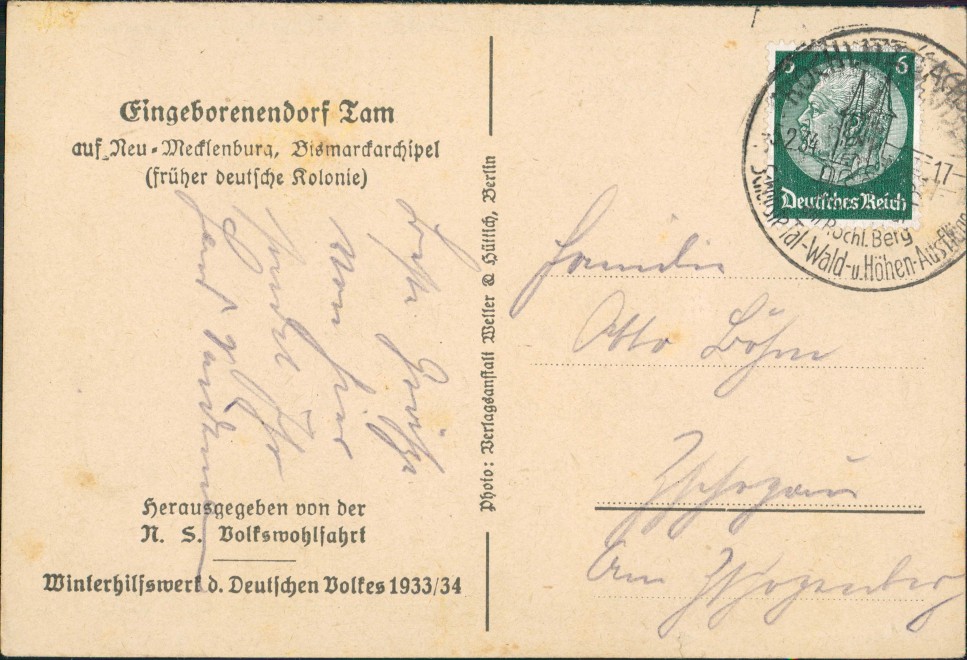 Eingeborenendorf Tam
auf Neu-Mecklenburg, Bismarckarchipel
(früher deutsche Kolonie)
Beste Grüße
von hier
sendet
Herausgegeben von der
N. S. Volkswohlfahrt
Winterhilfswerk d. Deutschen Volkes 1933/34
Photo: Verlagsanstalt Weller & Hüttich, Berlin
6 6
Deutsches Reich
2.34 17-
Rochl. Berg
Tal-Wald-u. Höhen-Ausflüge
Familie
Otto Böhm
Zschopau
Am Zschopenberg